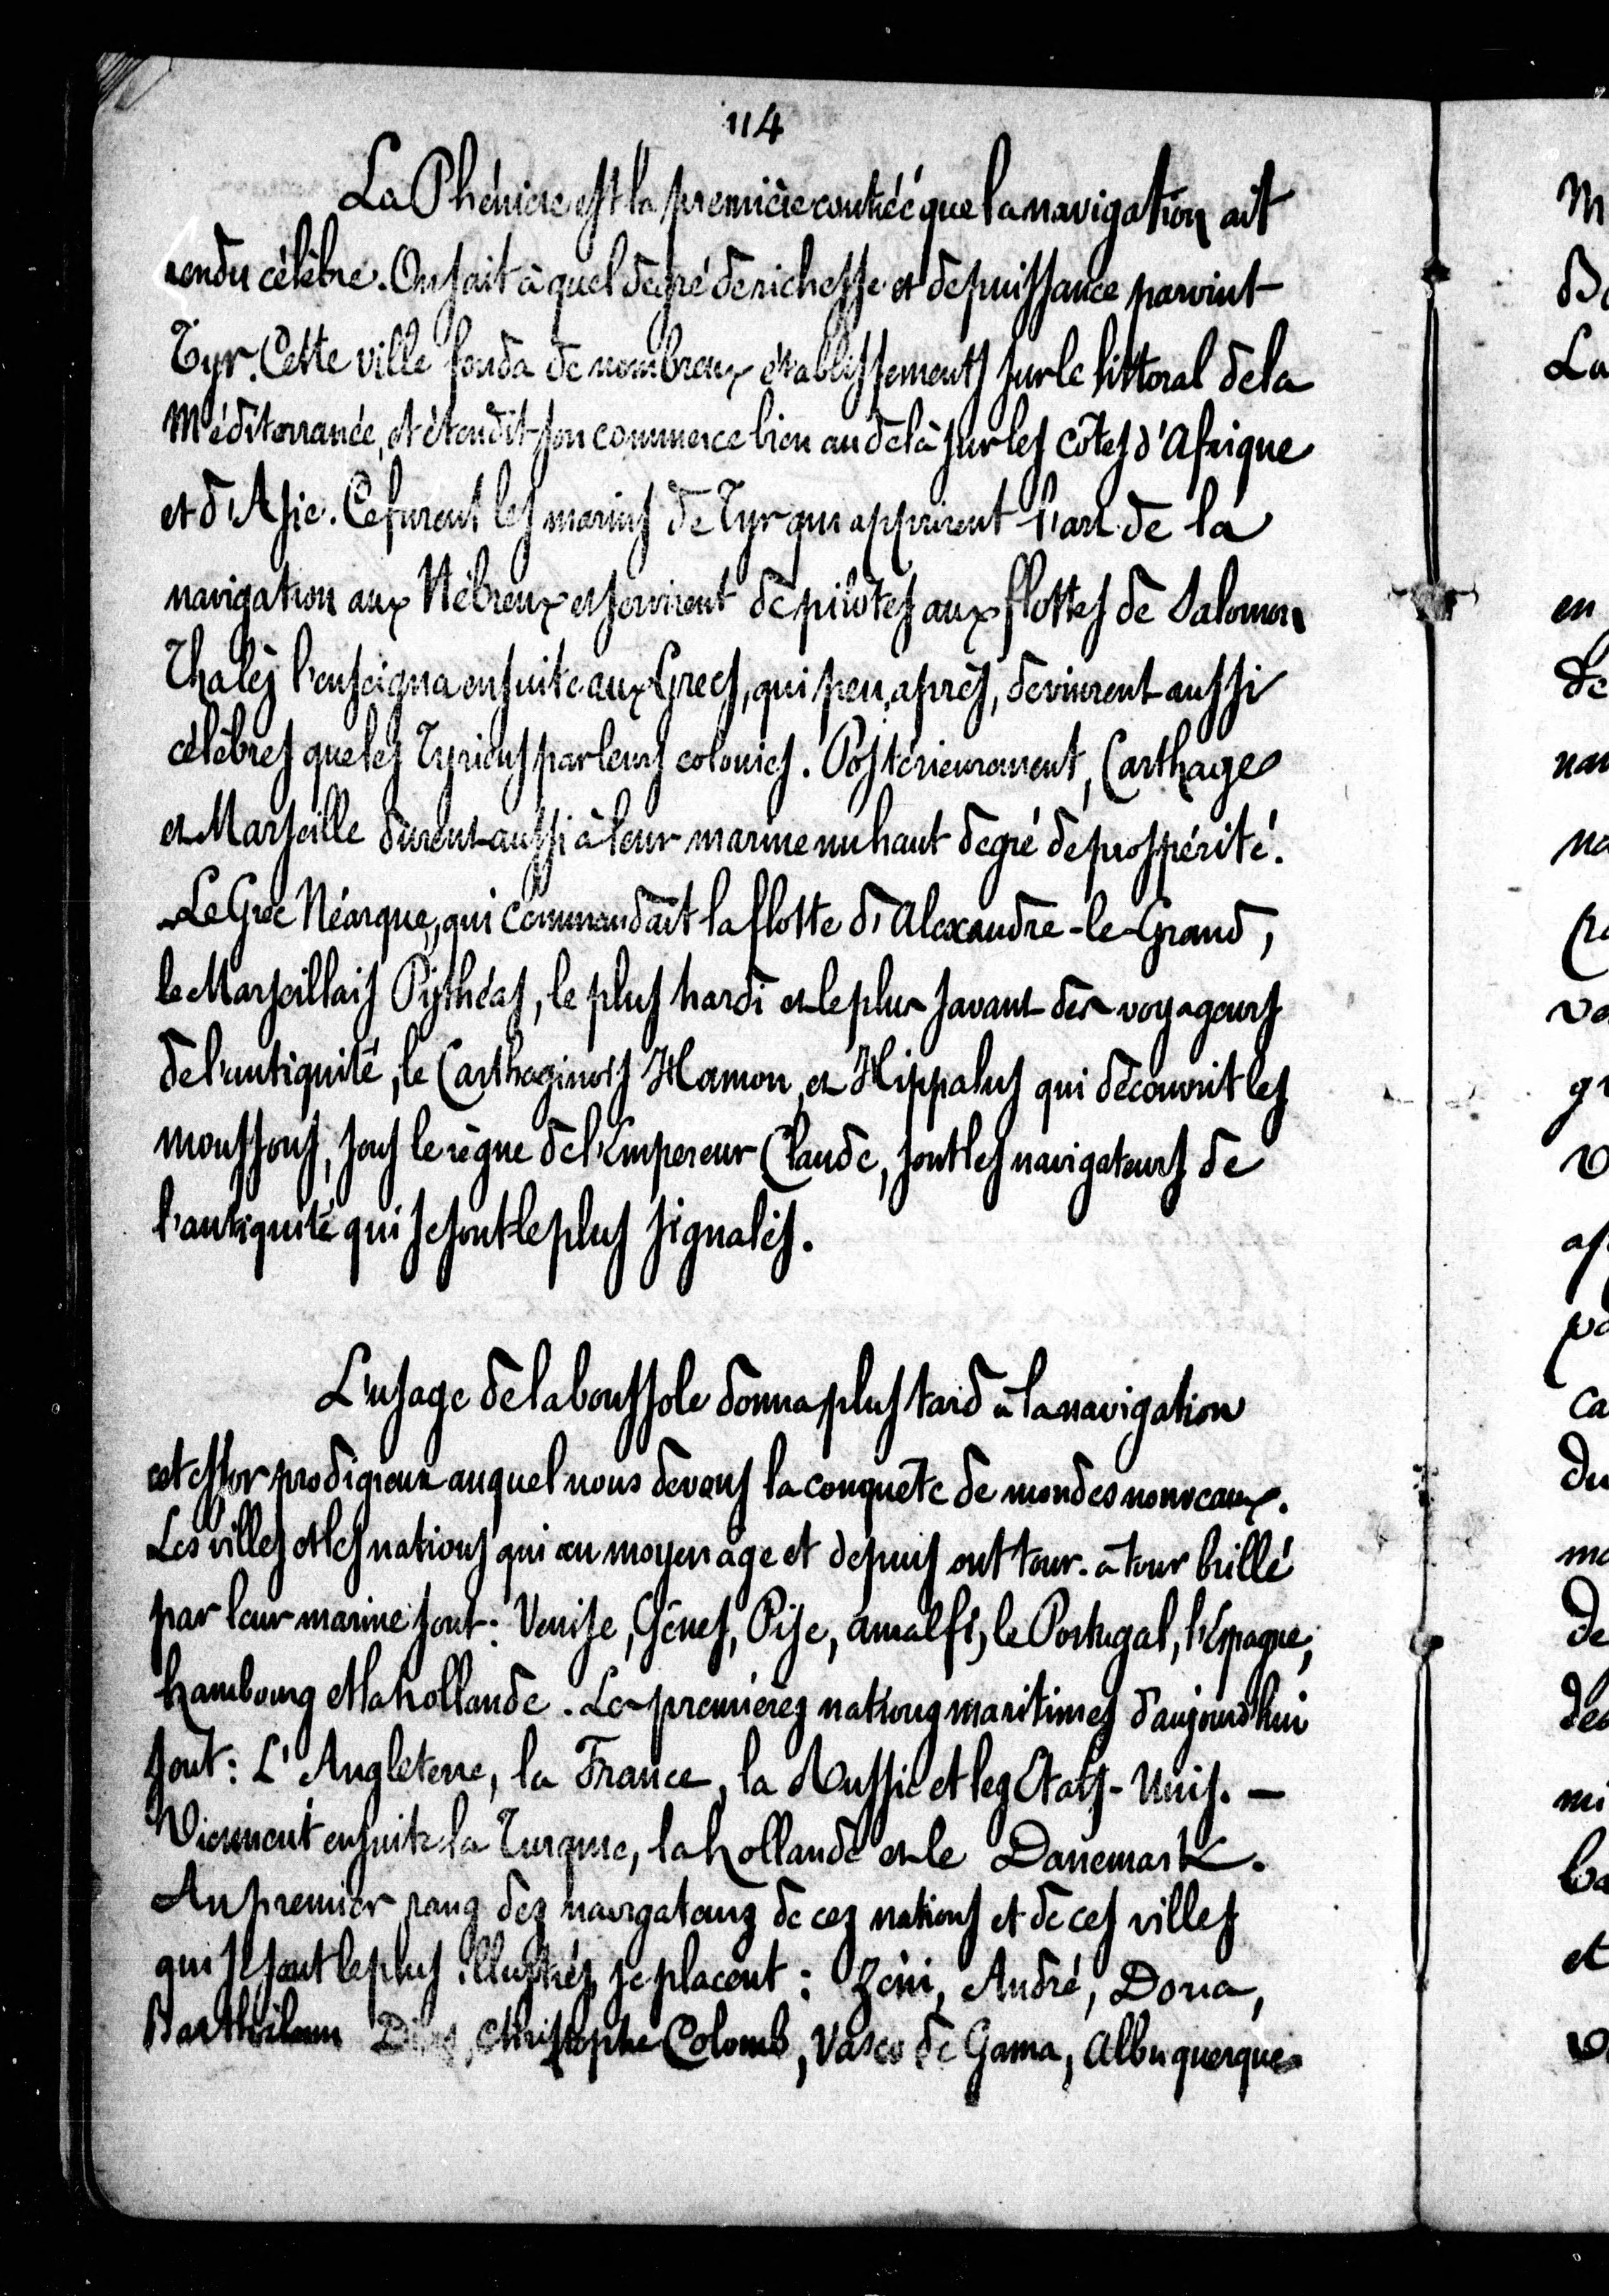 114
La Phénicie est la première contrée que la navigation ait
rendu célèbre. On sait à quel degré de richesse et de puissance parvint
Tyr. Cette ville fonda de nombreux établissements sur le littoral de la
Méditerranée, et étendit son commerce bien au delà sur les côtes d'Afrique
et d'Asie. Ce furent les marins de Tyr qui apprirent l'art de la
navigation aux Hébreux et servirent de pilotes aux flottes de Salomon
Thalès l'enseigna ensuite aux Grecs, qui peu après, devinrent aussi
célèbres que les Tyriens par leurs colonies. Postérieurement, Carthage
et Marseille durent aussi à leur marine un haut degré de prospérité.
Le Grec Néarque, qui commandait la flotte d'Alexandre-le-Grand,
le Marseillais Pythéas, le plus hardi et le plus savant des voyageurs
de l'antiquité, le Carthaginois Hamon, et Hippalus qui découvrit les
moussons, sous le règne de l'Empereur Claude, sont les navigateurs de
l'antiquité qui se sont le plus signalés.
L'usage de la boussole donna plus tard à la navigation
cet essor prodigieux auquel nous devons la conquête de mondes nouveaux.
Les villes et les nations qui au moyen âge et depuis ont tour-à tour brillé
par leur marine sont: Venise, Gênes, Pise, amalfi, le Portugal, l'Espagne,
hambourg et la hollande. Les premières nations maritimes d'aujourd'hui
sont: L'Angleterre, la France, la Russie et les Etats-Unis. —
Viennent ensuite la Turquie, la hollande et le Danemark.
Au premier rang des navigateurs de ces nations et de ces villes
qui se sont le plus illustrés, se placent: Zéni, André, Doria,
Barthélemi Dias, Christophe Colomb, Vasco de Gama, Albuquerque
M
Ba
La
en
de
nau
na
va
gr
V
as
pa
ca
du
ma
de
des
mi
ba
et